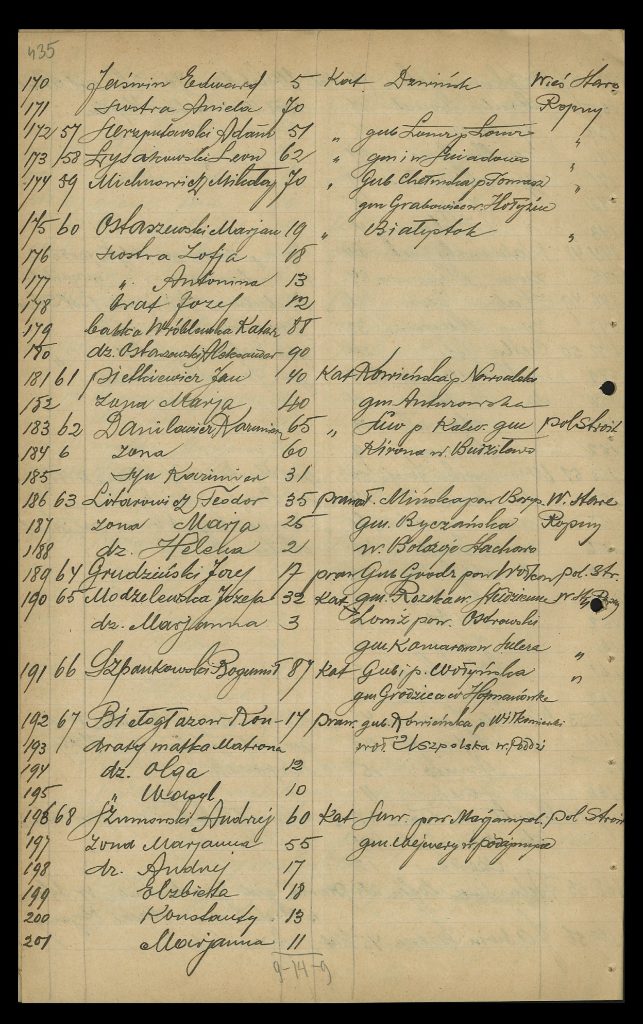 435
170 Jaświn Edward 5 Kat. Dzwińsk Wieś Stare
171 siostra Aniela 70 Ropny
172 57 Adam 51 „ gub Łomż p Łomż „
173 58 Leon 62 „ gm i w Śniadowo „
174 59 Michnowicz Mikołaj 70 „ Gub. Chełmska p Tomasz „
gm Grabowiec w. Hołyżne
175 60 Ostaszewski Marjan 19 „ Białystok „
176 siostra Zofja 18
177 „ Antonina 13
178 brat Józef 12
179 babka Wróblewska Katar 88
180 dz. Ostaszewski Aleksander 90
181 61 Pietkiewicz Jan 40 Kat Kowieńska p
182 żona Marja 40 gm
183 62 Danilowicz Kazimier 65 „ Suw p Kalw. gm pol Stroit
184 6 żona 60 w.
185 syn Kazimier 31
186 63 Litarowicz Teodor 35 prawosł. Mińska pow Borys. W. Stare
187 żona Marja 25 gm. Byczańska Ropny
188 dz. Helena 2 w.
189 64 Grudziński Józef 17 praw Gub Grodz pow Wołkow pol. Str.
190 65 Modzelewska Józefa 32 Kat gm. w.
dz. Marjanna 3 Łomż pow. Ostrowski
gm Komorowo w „
191 66 Szpankowski Bogumił 87 Kat Gub i p. Wołyńska „
gm
192 67 Biełogłazow Kon- 17 praw. gub. Kowieńska p Wiłkomierski
193 draty matka Matrona woł. Uszpolska w.
194 dz. Olga 12
195 „ Wasyl 10
196 68 Szumowski Andrzej 60 Kat Suw. pow Marjampol. pol Stroit
197 żona Marjanna 55 gm. w
198 dz. Andrzej 17
199 Elżbieta 18
200 Konstanty 13
201 Marjanna 11
9-14-9